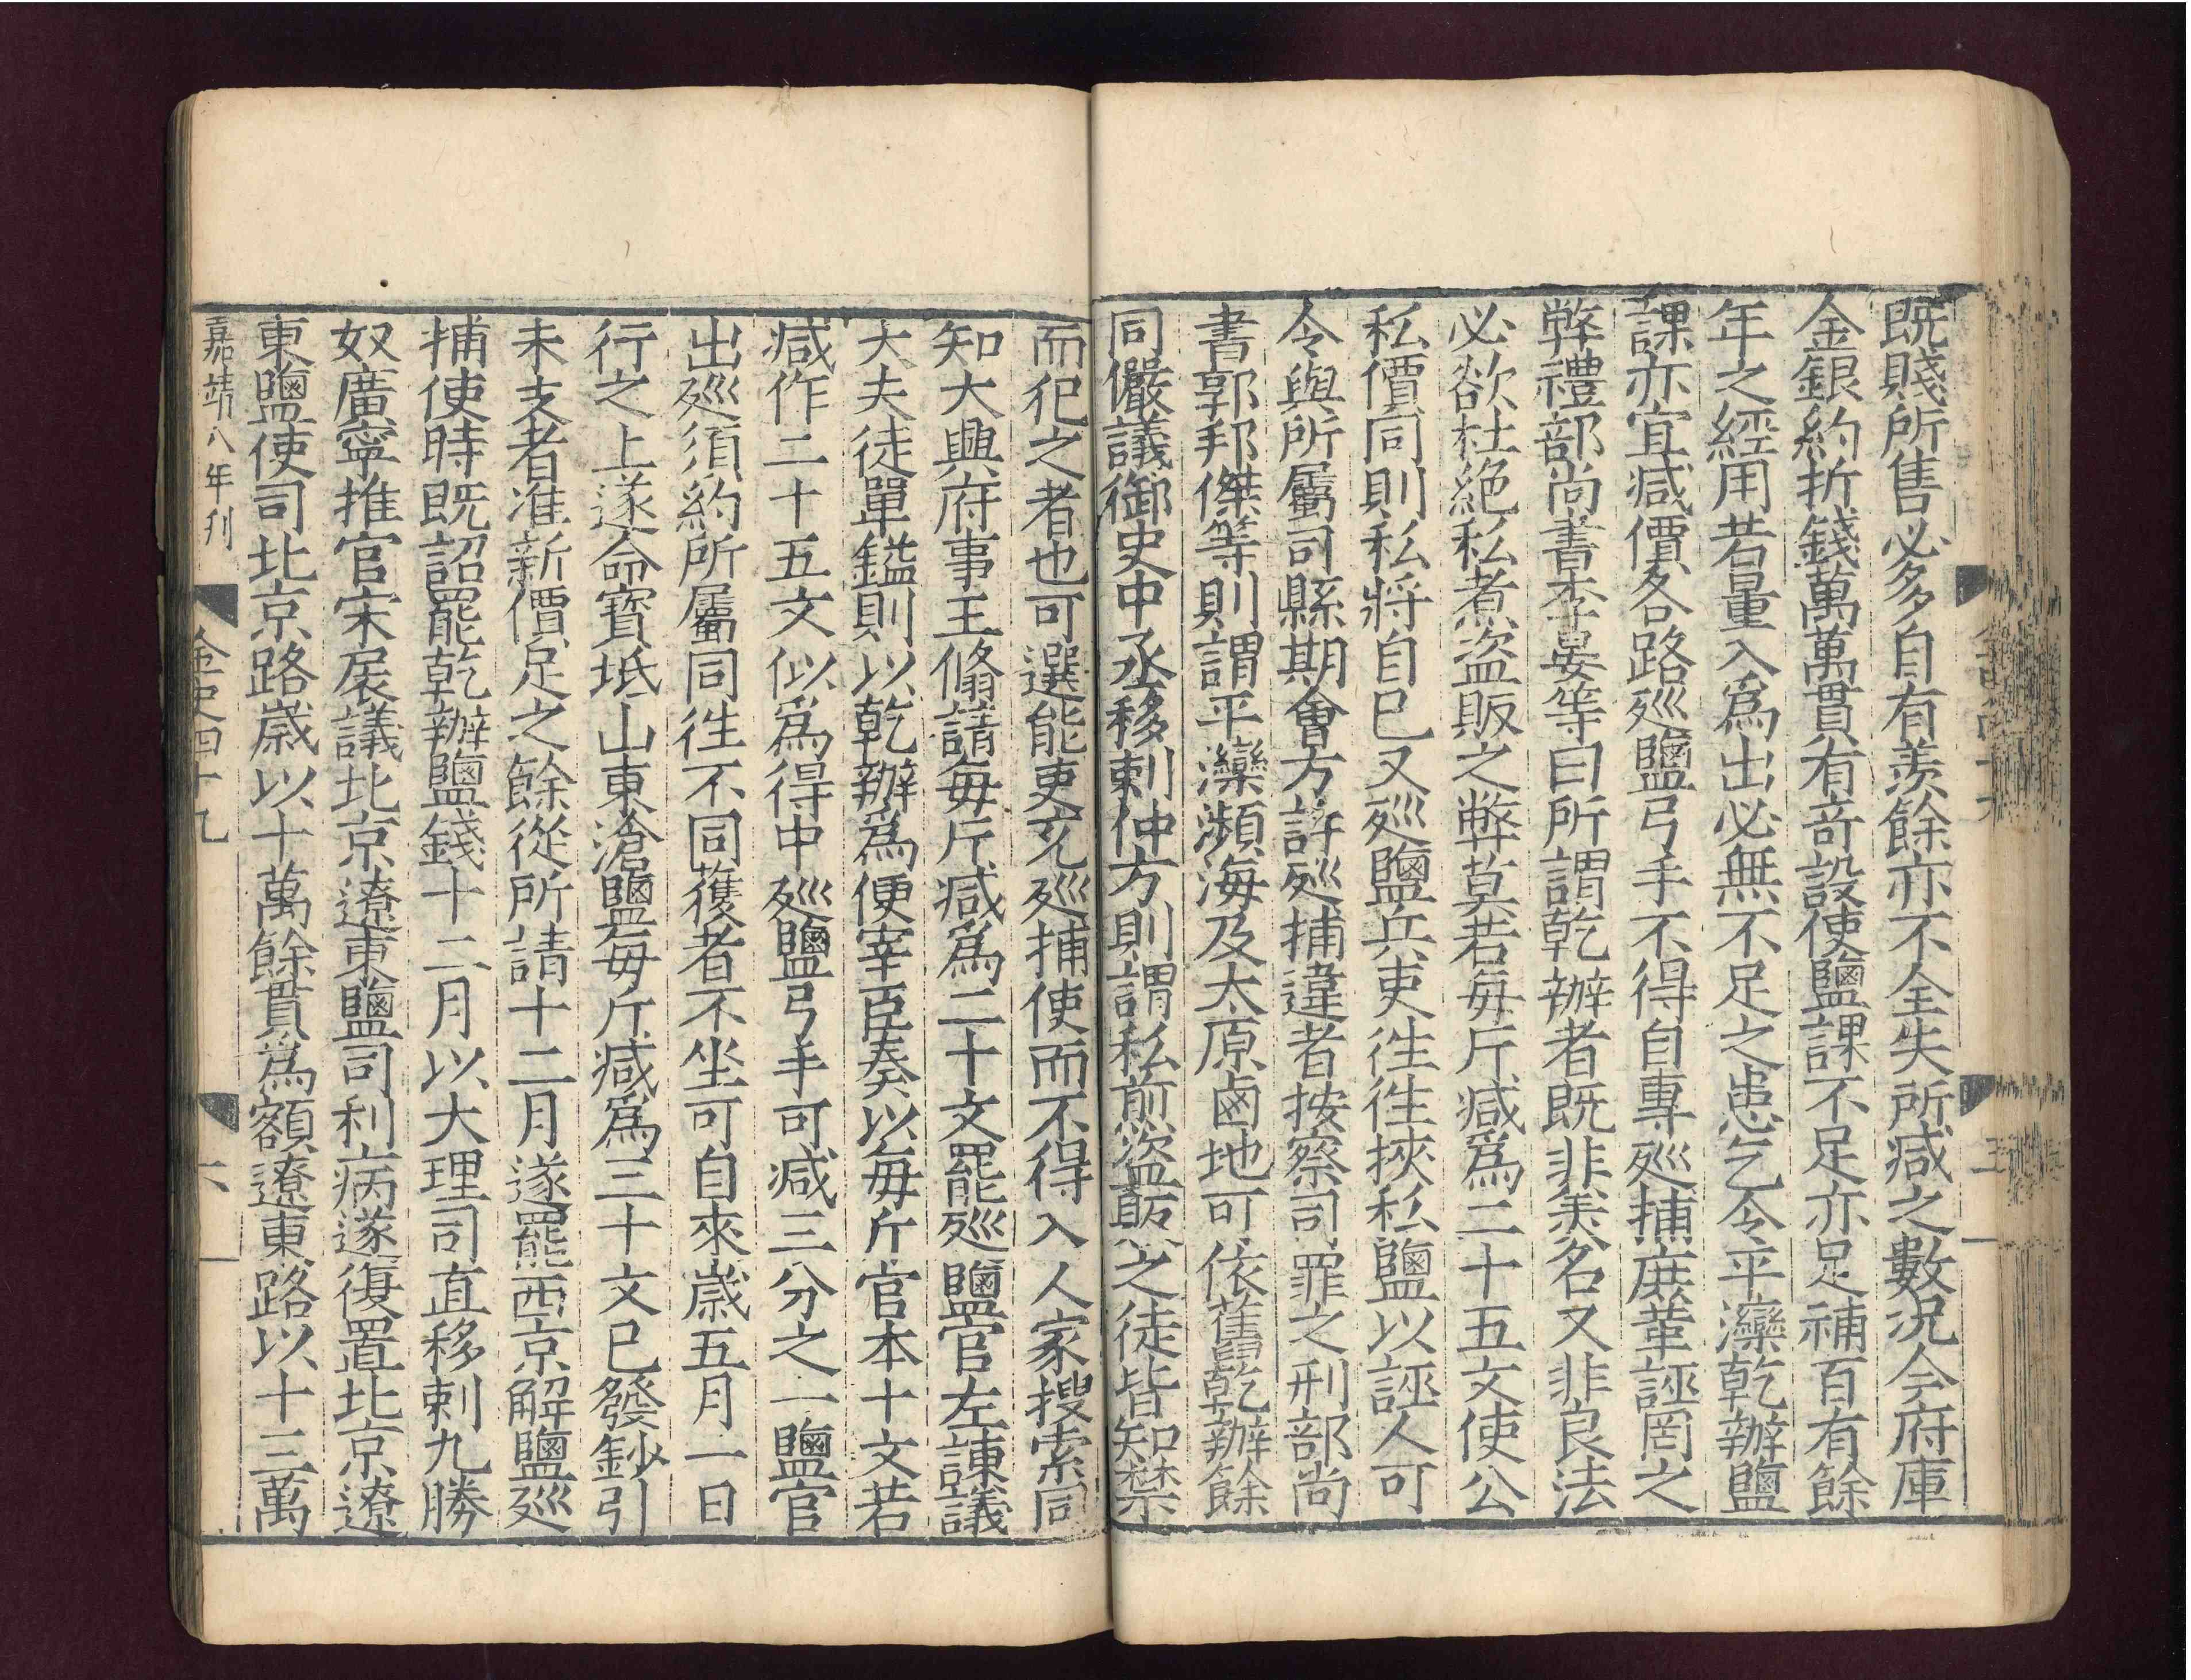 既賤所售必多自有羨餘亦不全失所減之數況今府庫
金銀約折錢萬萬貫有奇設使鹽課不足亦足補百有餘
年之經用若量入爲出必無不足之患乞令平灤乾辦鹽
課亦宜減價各路廵鹽弓手不得自專廵捕庶革誣罔之
弊禮部尚書李晏等曰所謂乾辦者既非美名又非良法
必欲杜絶私煮盜販之弊莫若每斤減爲二十五文使公
私價同則私將自已又廵鹽兵吏徃徃挾私鹽以誣人可
令與所屬司縣期會方許廵捕違者按察司罪之刑部尚
書郭邦傑等則謂平灤瀕海及太原鹵地可依舊乾辦餘
同儼議御史中丞移剌仲方則謂私煎盜販之徒皆知禁
而犯之者也可選能吏充廵捕使而不得入人家搜索同
知大興府事王脩請每斤減爲二十文罷廵鹽官左諫議
大夫徒單鎰則以乾辦爲便宰臣奏以每斤官本十文若
減作二十五文似爲得中廵鹽弓手可減三分之一鹽官
出廵須約所屬同徃不同獲者不坐可自來歲五月一日
行之上遂命寶坻山東滄鹽每斤減爲三十文已發鈔引
未支者准新價足之餘從所請十二月遂罷西京解鹽廵
捕使時既詔罷乾辦鹽錢十二月以大理司直移剌九勝
奴廣寧推官宋扆議北京遼東鹽司利病遂復置北京遼
東鹽使司北京路歲以十萬餘貫爲額遼東路以十三萬
嘉靖八年刊
金史四十九
六